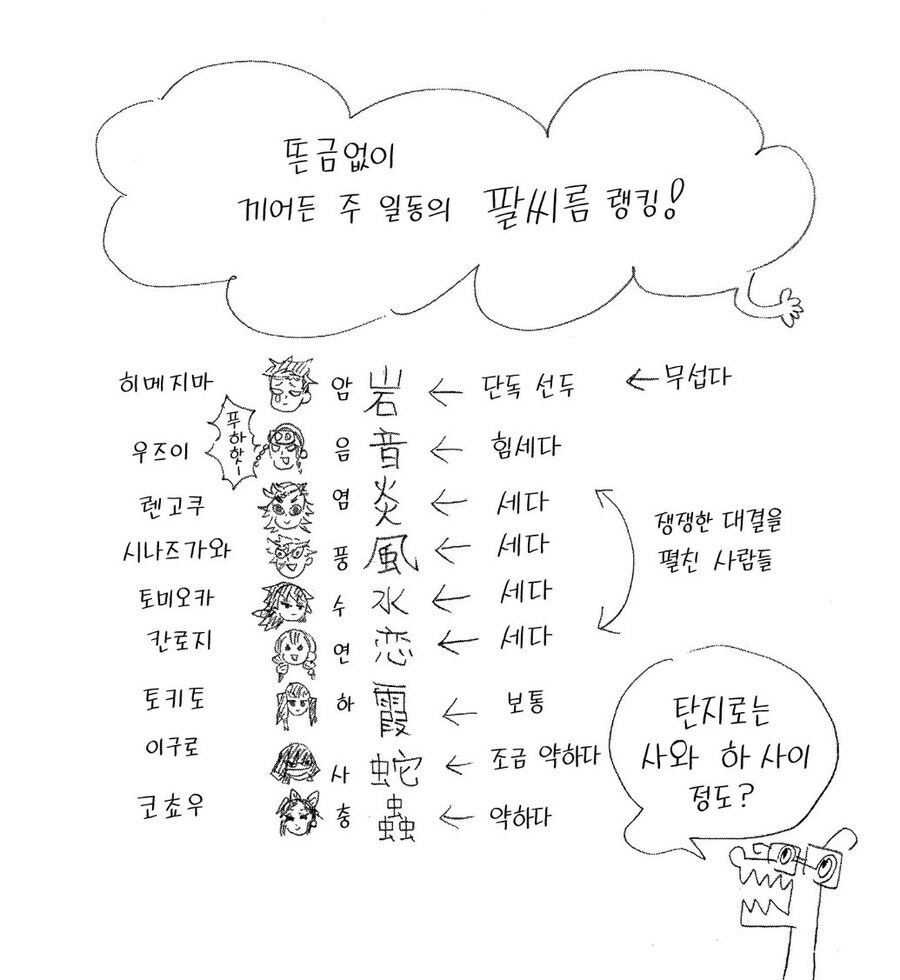 뜬금없이
끼어든 주 일동의 팔씨름 랭킹!
히메지마 암 岩 ← 단독 선두 ← 무섭다
푸하핫-
우즈이 음 音 ← 힘세다
렌고쿠 염 炎 ← 세다
시나즈가와 풍 風 ← 세다
토미오카 수 水 ← 세다
칸로지 연 恋 ← 세다
쟁쟁한 대결을
펼친 사람들
토키토 하 霞 ← 보통
이구로 사 蛇 ← 조금 약하다
코쵸우 충 蟲 ← 약하다
탄지로는
사와 하 사이
정도?